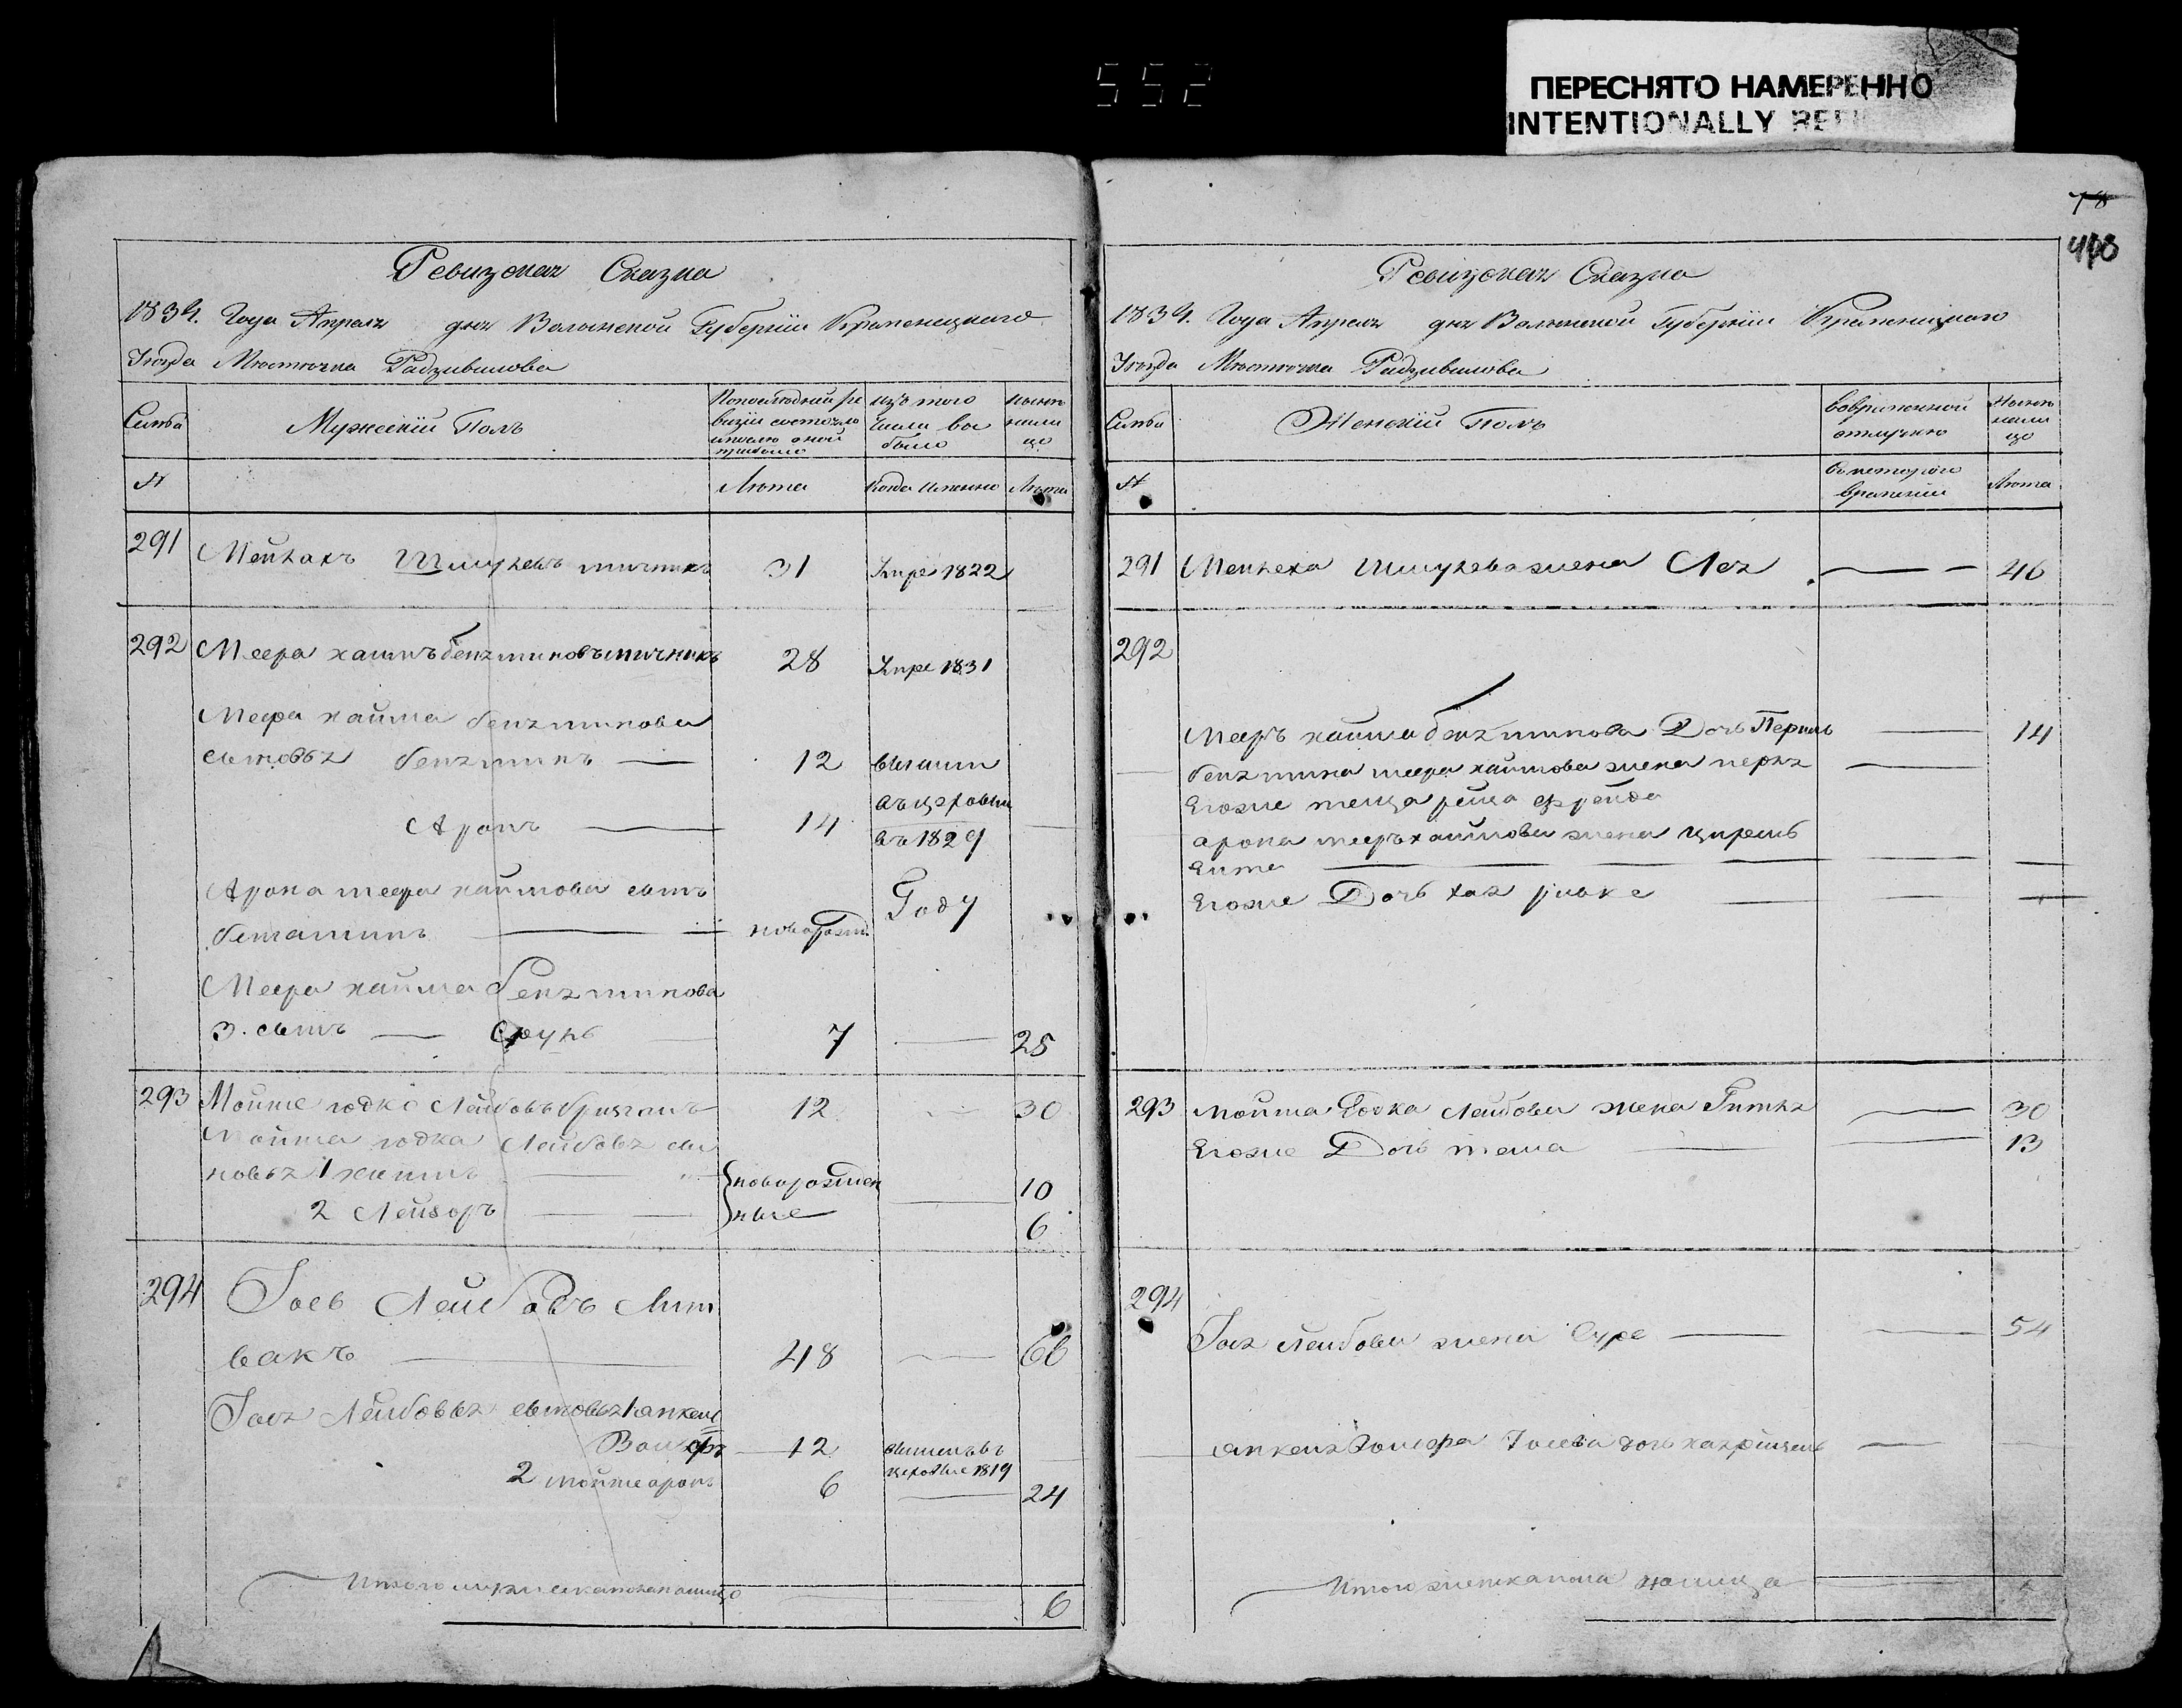 552
ПЕРЕСНЯТО НАМЕРЕННО
INTENTIONALLY
78
Ревизская Сказка
1834. Года Апреля дня Волынской Губернiи Кременецкаго
Уѣзда Мѣстечка Радзивилова
Семьи
Мужескiй Полъ
По последней ре
визiи состояло
и после оной
прибыло
изъ того
числа вы
было
ныне
нали
цо
№
Лѣта
Когда именно
Лѣта
291
Шмулевъ
31
Умре 1822
292
28
Умре 1831
Меера хаима бензминова
сыновья бензминъ
12
Аронъ
14
въ 1829
Году
Арона меера хаимова сынъ
бенiаминъ
новорожд.
Меера хаима бензминова
3. сынъ Сруль
7
25
293 Мойше юдко Лейбовъ
12
30
Мойша юдка Лейбовъ сы
новья 1 хаимъ
новорожден
10
2 Лейзоръ
ные
6
294 Iось Лейбовъ Лит
вакъ
48
66
Iося Лейбовы сыновья 1 Янкель
Вольфъ
12
1819
2 мойше аронъ
6
24
Итого мужеска пола на лицо
6
Ревизская Сказка
1834. Года Апреля дня Волынской Губернiи Кременецкаго
Уѣзда Мѣстечка Радзивилова
Семьи
Женскiй Полъ
во временной
отлучке
Ныне
нали
цо
№
съ котораго
времени
Лѣта
291
Шмулева жена Лея
46
292
Мееръ хаима бензминова Дочь Перль
14
бензмина меера хаимова жена
Егоже теща фрейда
арона мееръ хаимова жена
Егоже Дочь хая ривке
293 мойша юдка Лейбова жена Гитля
30
Егоже Дочь
13
294
Iося Лейбова жена Суре
54
Янкеля Вольфа Iосева дочь
Итого женска пола на лицо